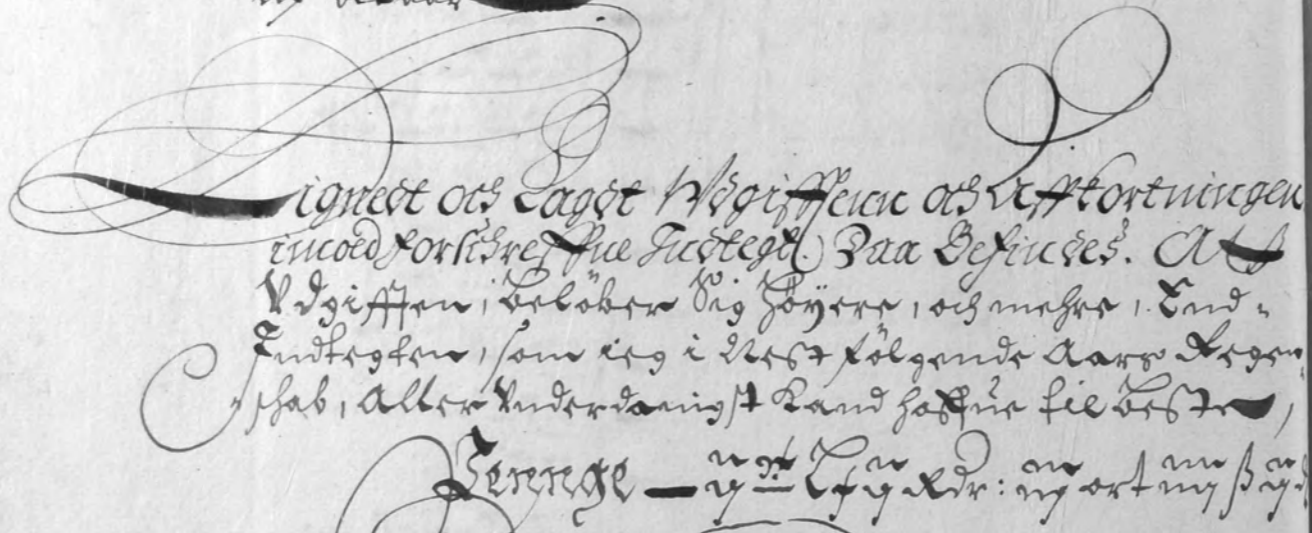 Lignedt och Lagdt Wdgifftenn och Affkortningen
imoed forschreffne Indtegt. Daa Befindes. Att
Vdgifften, beløber Sig høyere, och mehre, End-
Indtegten, som ieg i Nest følgende Aars Regen
schab, Aller Vnderdanigst kand haffue til beste,
Pennge — Rdr: ort ß